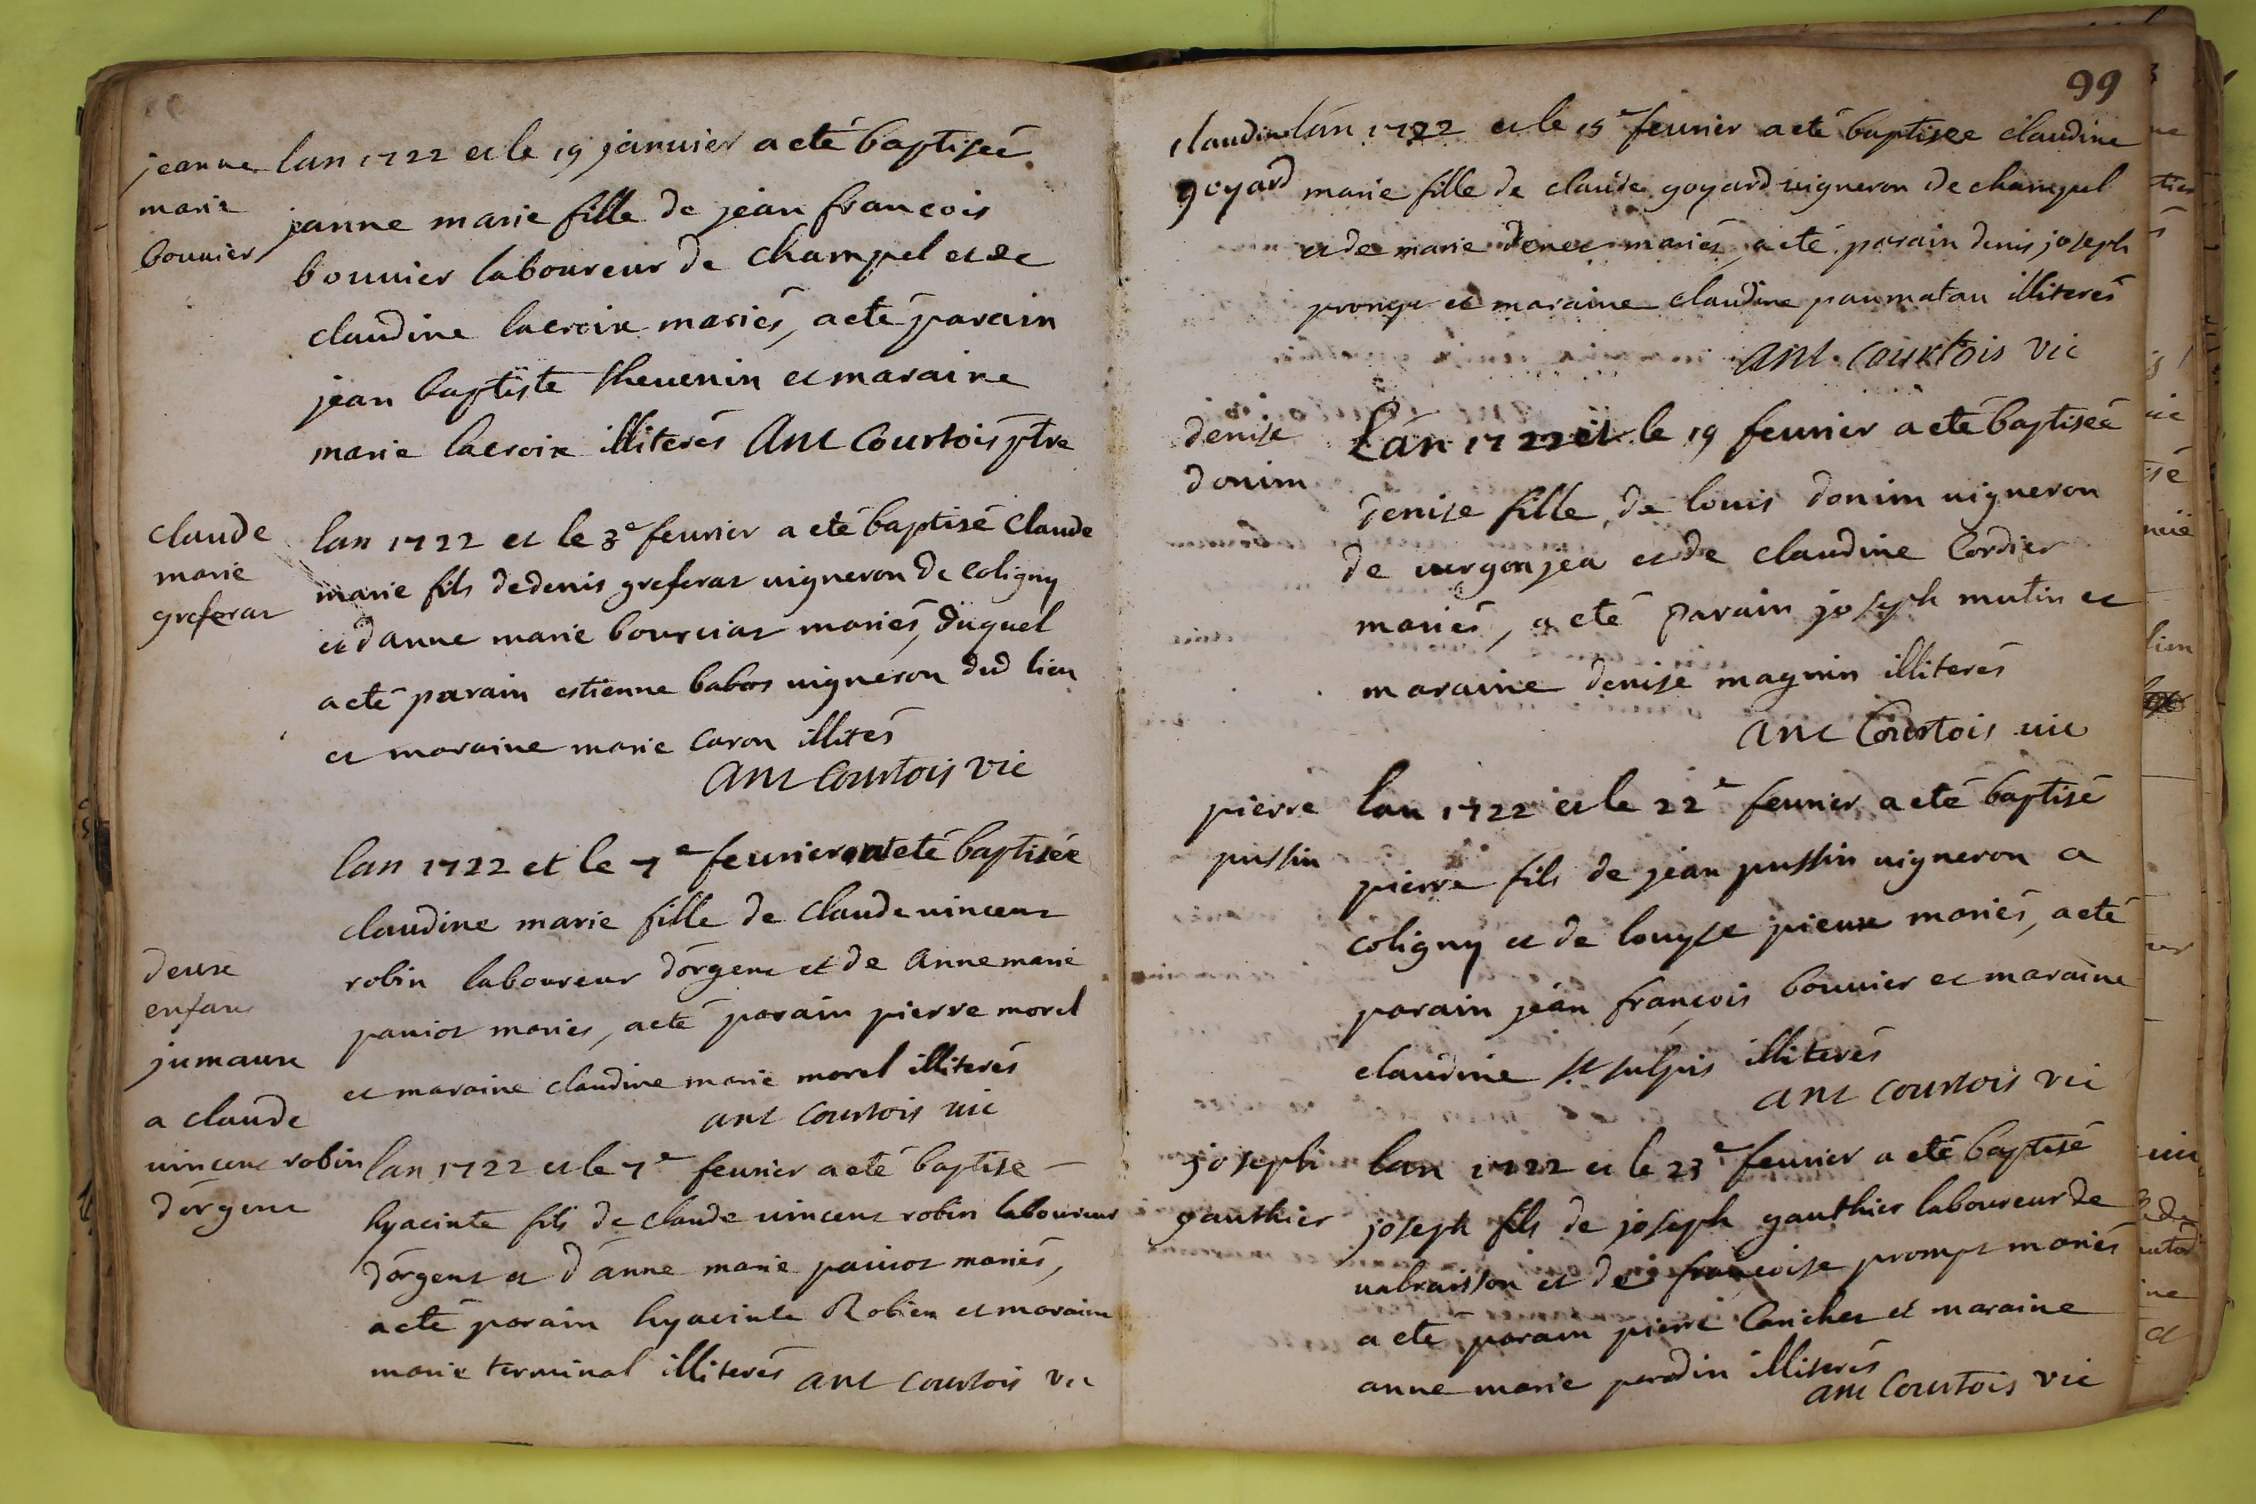 jeanne
marie
bouuier
lan 1722 et le 19 januier a eté baptiseé
janne marie fille de jean françois
bouuier laboureur de champel et de
claudine lacroix mariés, a eté parain
jean baptiste theuenin et maraine
marie lacroix illiterés Ant Courtois ptre
claude
marie
greferat
lan 1722 et le 3e feurier a eté baptisé claude
marie fils de denis greferat uigneron de coligny
et danne marie bourciat mariés, duquel
a eté parain estienne babos uigneron dud lieu
et maraine marie caron illités
Ant Courtois vic
lan 1722 et le 7e feurier a eté baptisée
claudine marie fille de claude uincent
robin laboureur dorgent et de anne marie
pauiot mariés, a eté parain pierre morel
et maraine claudine marie morel illiterés
ant courtois uic
deux
enfans
jumaux
a claude
uincent robin
dorgent
lan 1722 et le 7e feurier a eté baptise
hyacinte fils de claude uincent robin laboureur
dorgent et d'anne marie pauiot mariés,
a eté parain hyacinte Robin et maraine
marie terminal illiterés ant courtois vic
99
claudine
goyard
lan 1722 et le 15e feurier a eté baptisee claudine
marie fille de claude goyard uigneron de champel
et de marie donet mariés, a eté parain denis joseph
prompt et maraine claudine paumatau illiterés
Ant courtois vic
denise
donim
Lan 1722 et le 19 feurier a eté baptiseé
denise fille de louis donim uigneron
de uergonjea et de claudine Cordier
mariés, a eté parain joseph mutin et
maraine denise magnin illiterés
Ant Courtois uic
pierre
pussin
lan 1722 et le 22e feurier a eté baptisé
pierre fils de jean pussin uigneron a
coligny et de louyse pieux mariés, a eté
parain jean françois bouuier et maraine
claudine st sulpis illiterés
ant courtois vic
joseph
gauthier
lan 1722 et le 23e feurier a eté baptisé
joseph fils de joseph gauthier laboureur de
ualraisson et de françoise prompt mariés
a eté parain pierre lanchet et maraine
anne marie perodin illiterés
ant Courtois vic